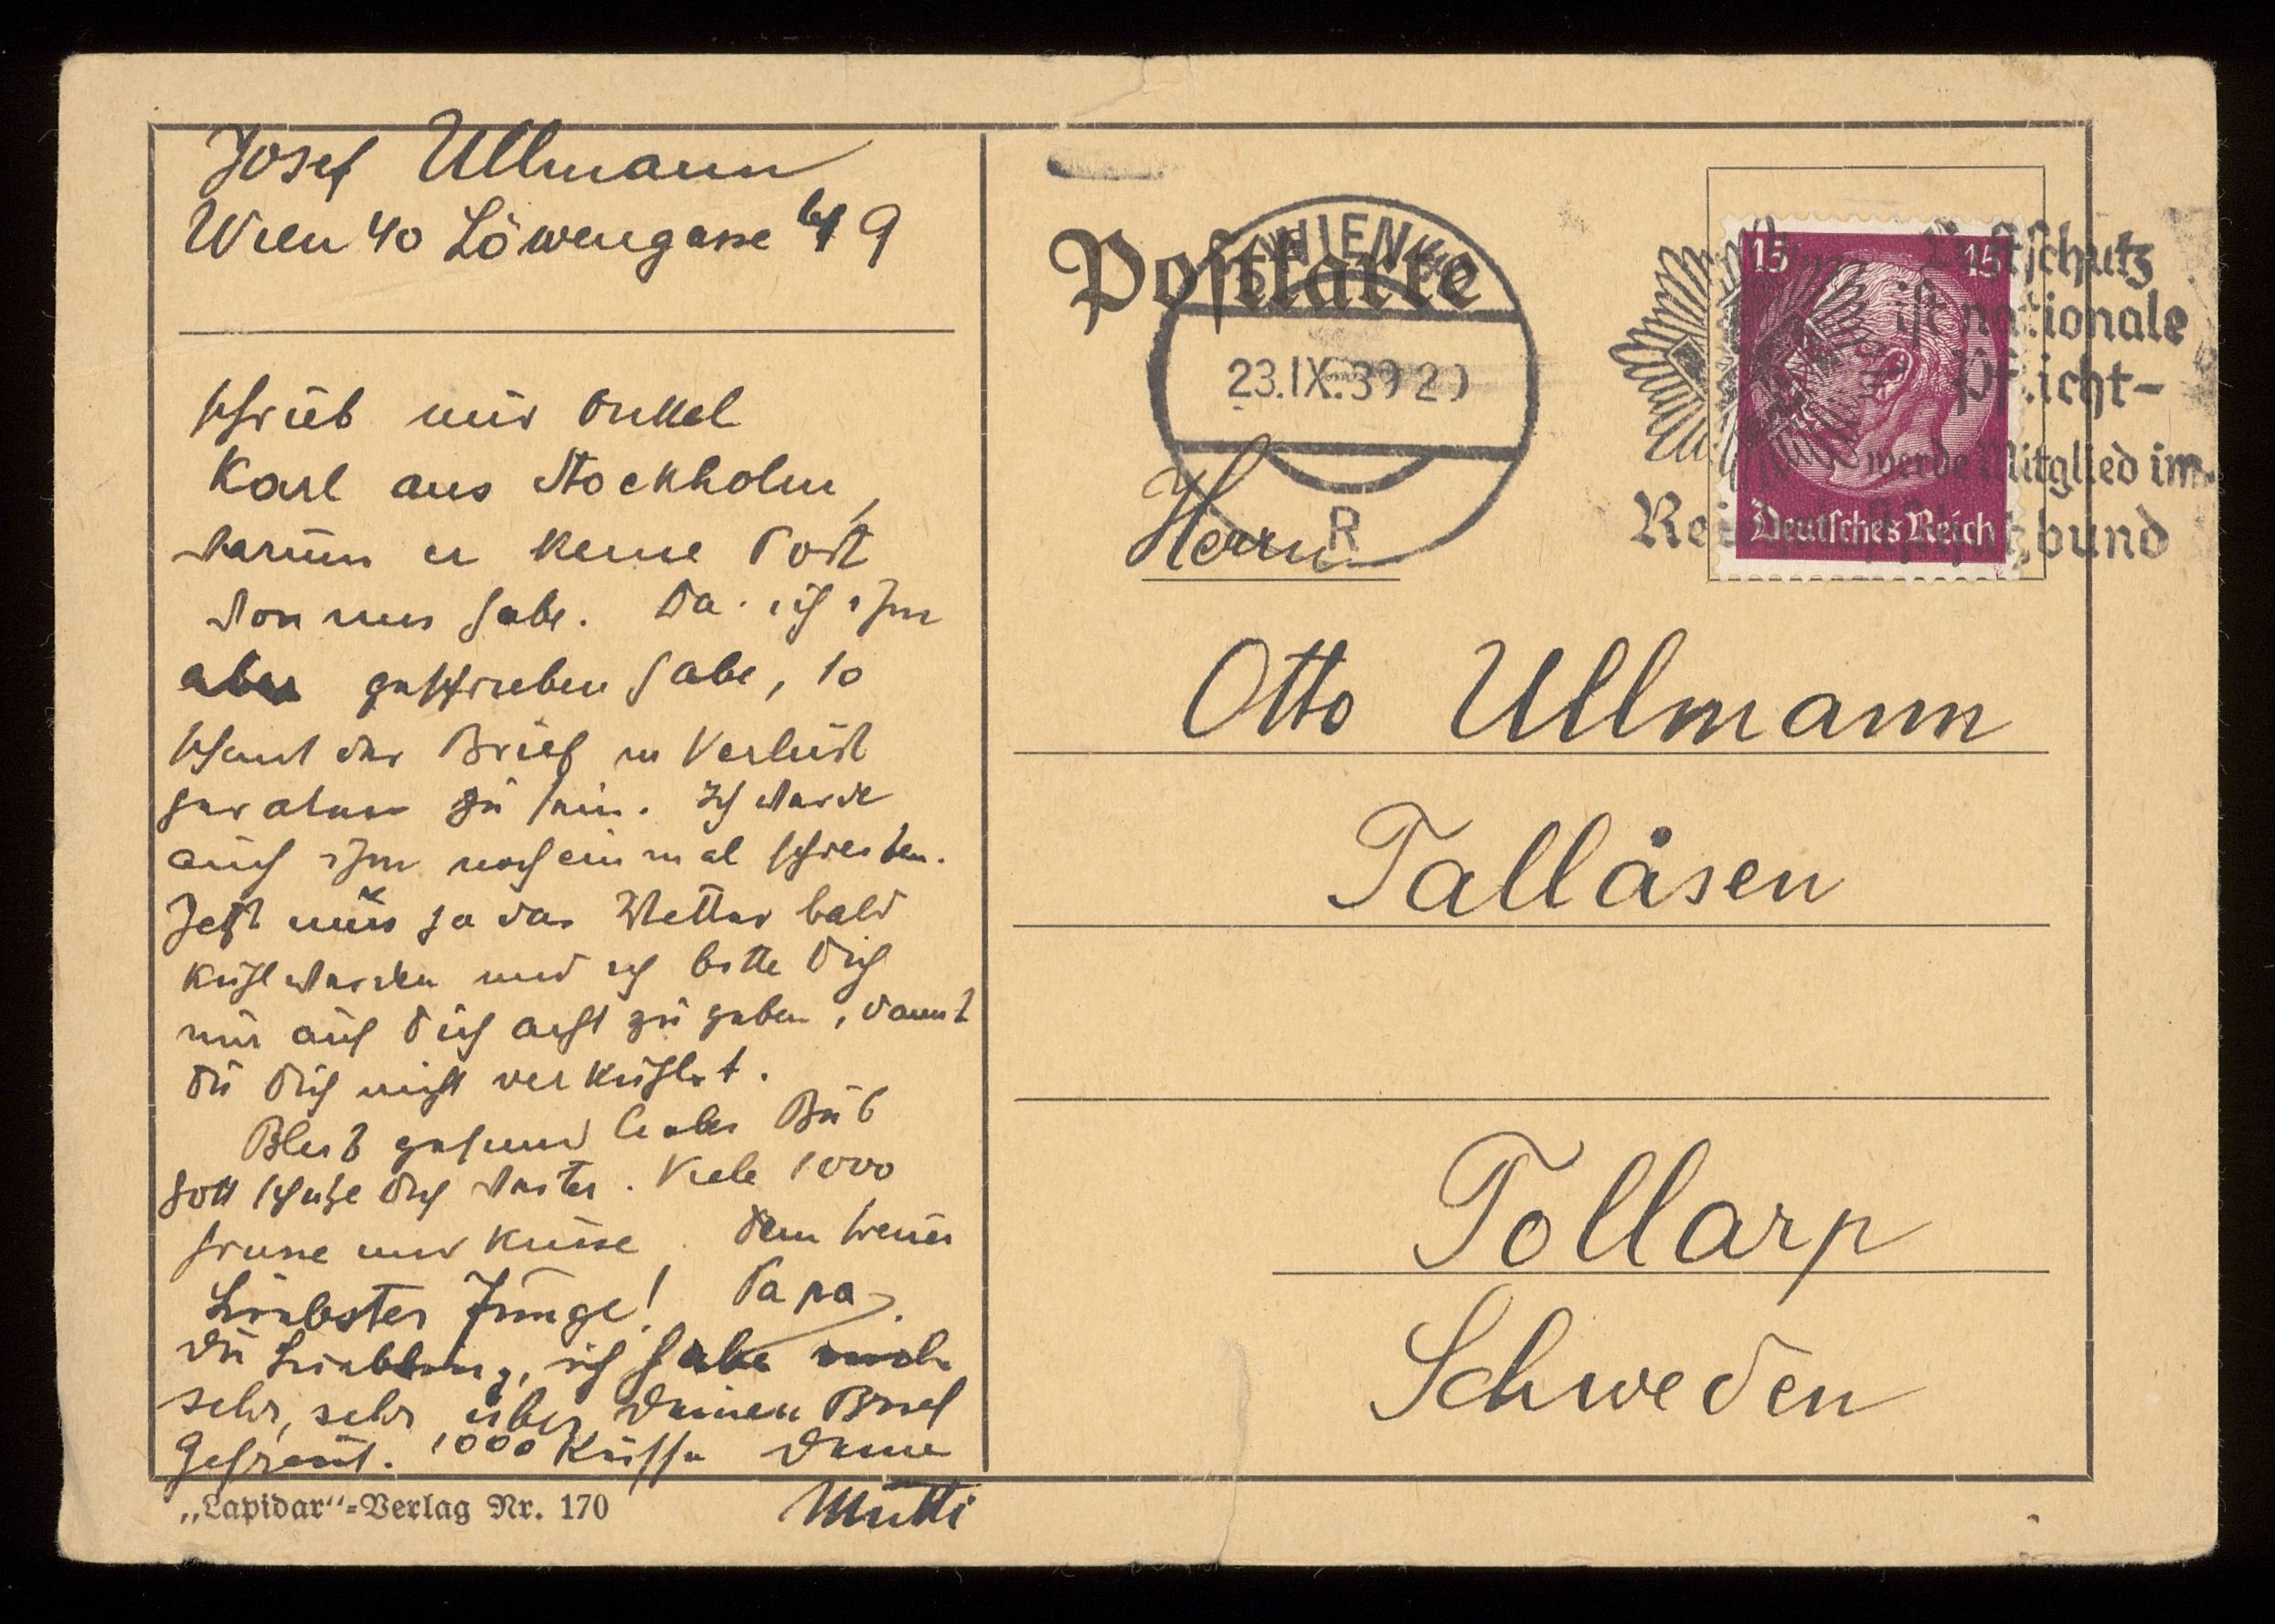 Josef Ullmann
Wien 40 Löwengasse 49
schrieb mir Onkel
Karl aus Stockholm,
warum er keine Post
von uns habe. Da ich ihm
aber geschrieben habe, so
scheint der Brief in Verlust
geraten zu sein. Ich werde
auch ihm noch einmal schreiben.
Jetzt muss ja das Wetter bald
kühl werden und ich bitte Dich
nur auf Dich acht zu geben, damit
Du Dich nicht verkühlst.
Bleib gesund lieber Bub
Gott schütze Dich weiter. Viele 1000
Grüsse und Küsse. Dein treuer
Papa.
Liebster Junge!
Du Liebling, ich habe mich
sehr, sehr über Deinen Brief
gefreut. 1000 Küsse Deine
Mutti
„Lapidar“-Verlag Nr. 170
Postkarte
WIEN
23.IX.39 20
R
15 15
Deutsches Reich
Luftschutz
ist nationale
Pflicht-
werde Mitglied im
Reichsluftschutzbund
Herrn
Otto Ullmann
Tallåsen
Tollarp
Schweden